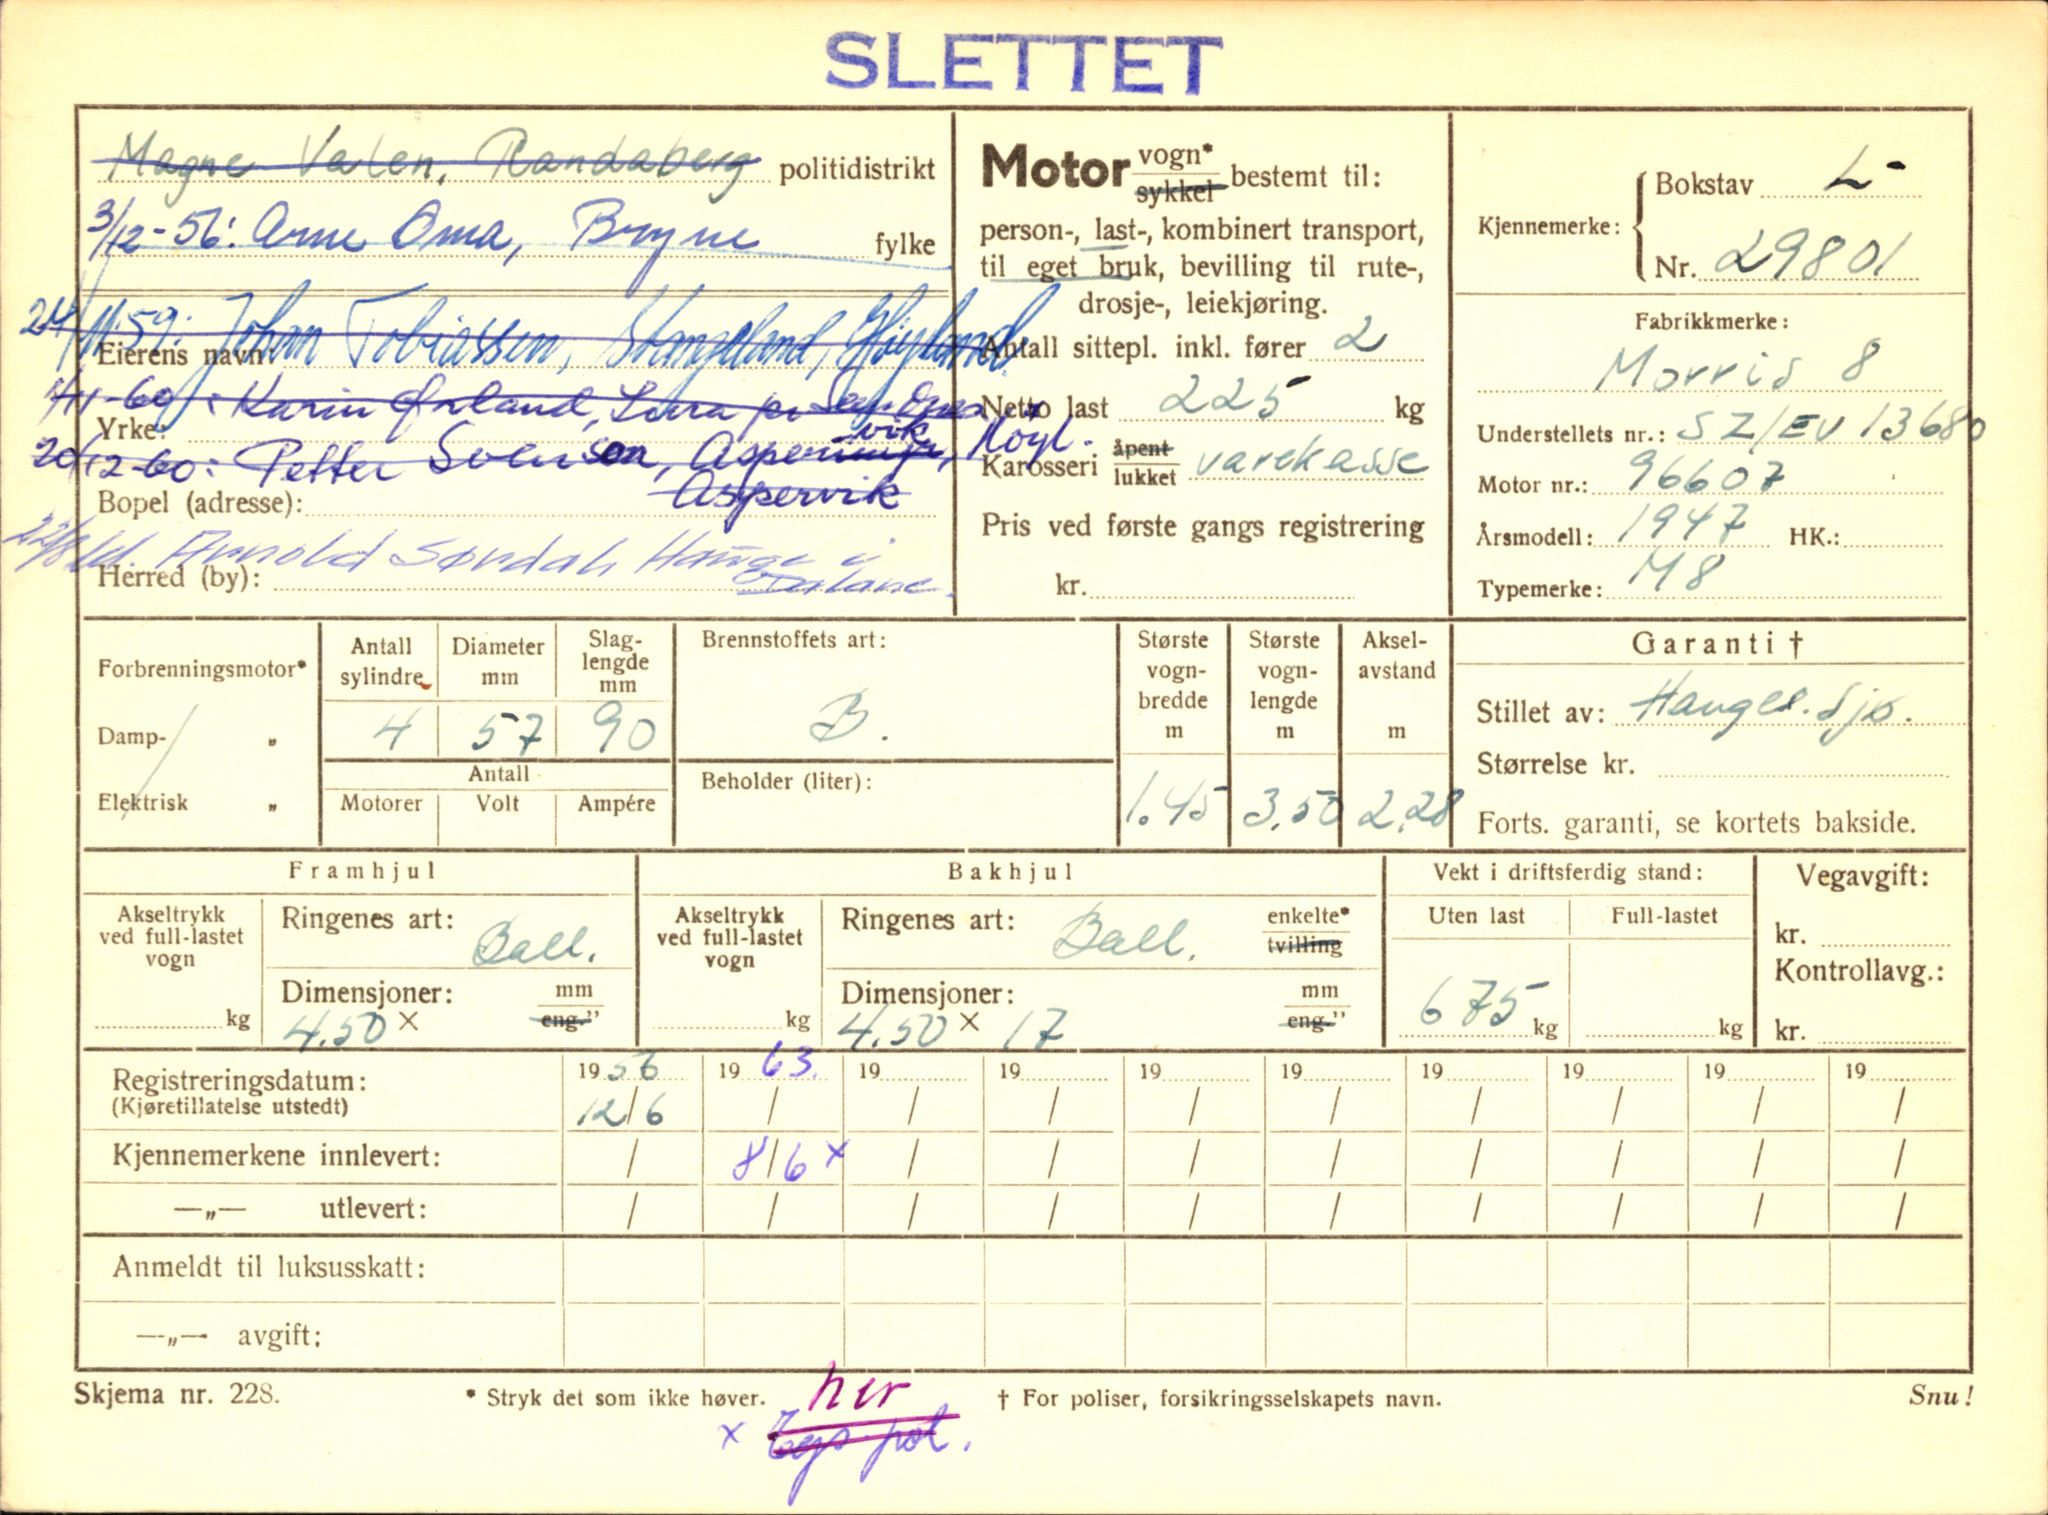 SLETTET
Magne Valen, Randaberg politidistrikt
3/12-56: Arne Oma, Bryne fylke
24/11-59: Johan Tobiassen, Stangeland, Høyland
Eierens navn:
1/11-60: Karin Ørland, Lura pr
Yrke:
20/12-60: Petter Svensen, Aspervik, Høyl.
Aspervik
Bopel (adresse):
Arnold Sørdal, Hauge i Dalane.
Herred (by):
Motor vogn* sykkel bestemt til:
person-, last-, kombinert transport,
til eget bruk, bevilling til rute-,
drosje-, leiekjøring.
Antall sittepl. inkl. fører 2
Netto last 225 kg
Karosseri åpent lukket varekasse
Pris ved første gangs registrering
kr.
Kjennemerke: Bokstav L-
Nr. 29801
Fabrikkmerke:
Morris 8
Understellets nr.: SZ/EV 13680
Motor nr.: 96607
Årsmodell: 1947 HK.:
Typemerke: M8
Forbrenningsmotor*
Damp- „
Elektrisk „
Antall sylindre Diameter mm Slag-lengde mm
4 57 90
Antall
Motorer Volt Ampére
Brennstoffets art:
B.
Beholder (liter):
Største vogn-bredde m Største vogn-lengde m Aksel-avstand m
1.45 3,50 2,28
Garanti †
Stillet av: Hauges. Sjø.
Størrelse kr.
Forts. garanti, se kortets bakside.
Framhjul
Akseltrykk ved full-lastet vogn
kg
Ringenes art: Ball.
Dimensjoner: mm eng."
4.50 ×
Bakhjul
Akseltrykk ved full-lastet vogn
kg
Ringenes art: Ball. enkelte* tvilling
Dimensjoner: mm eng."
4.50 × 17
Vekt i driftsferdig stand:
Uten last Full-lastet
675 kg kg
Vegavgift:
kr.
Kontrollavg.:
kr.
Registreringsdatum: 1956 1963. 19 19 19 19 19 19 19 19
(Kjøretillatelse utstedt) 12/6 / / / / / / / / /
Kjennemerkene innlevert: / 8/6 x / / / / / / / /
—„— utlevert: / / / / / / / / / /
Anmeldt til luksusskatt:
—„— avgift:
Skjema nr. 228. * Stryk det som ikke høver. her † For poliser, forsikringsselskapets navn. Snu!
x pol.